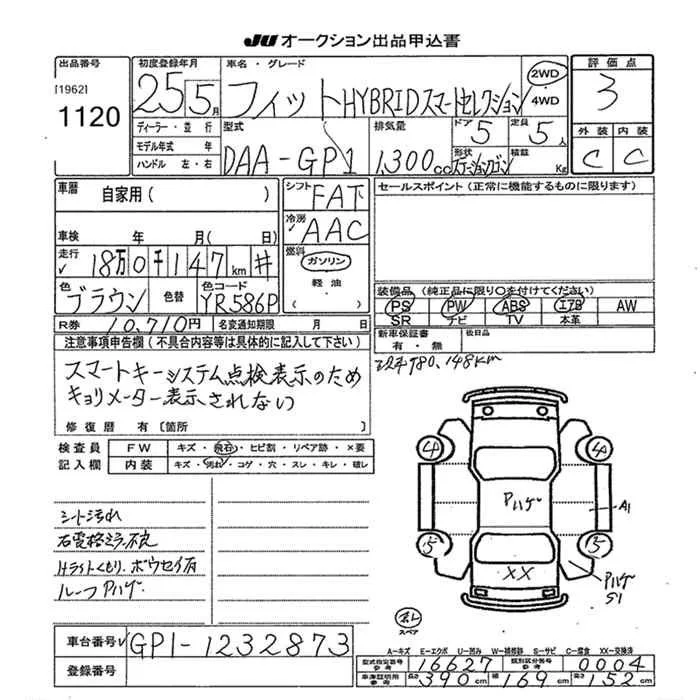 JU オークション出品申込書
出品番号
[1962]
1120
初度登録年月
25 5月
ディーラー・並行
モデル年式 年
ハンドル 左・右
車名・グレード
フィットHYBRIDスマートセレクション
2WD
4WD
型式
DAA-GP1
排気量
1,300cc
ドア 5
定員 5人
形状
ステーションワゴン
積載
Kg
評価点
3
外装 内装
C C
車暦 自家用( )
車検 年 月( 日)
走行
18万0千147km #
色
ブラウン
色替
色コード
YR586P
シフト
FAT
冷房
AAC
燃料
ガソリン
軽油
( )
R券 10,710円 名変通知期限 月 日
セールスポイント(正常に機能するものに限ります)
装備品(純正品に限り○を付けてください)
PS PW ABS エアB AW
SR ナビ TV 本革
新車保証書
有・無
後日品
180,148km
注意事項申告欄(不具合内容等は具体的に記入して下さい)
スマートキーシステム点検表示のため
キョリメーター表示されない
修復歴 有〔箇所 〕
検査員
記入欄
FW キズ・飛石・ヒビ割・リペア跡・×要
内装 キズ・汚れ・コゲ・穴・スレ・キレ・破レ
シート汚れ
右電格ミラー不良
Hライトくもり、ボウセイ有
ルーフPハゲ
4 4
Pハゲ
A1
5 5
XX
Pハゲ
S1
スペア
A-キズ E-エクボ U-凹み W-補修跡 S-サビ C-腐食 XX-交換済
車台番号 GP1-1232873
登録番号
型式指定番号
参考
16627
類別区分番号
参考
0004
車庫証明用
参考
長さ 390cm
幅 169cm
高さ 152cm